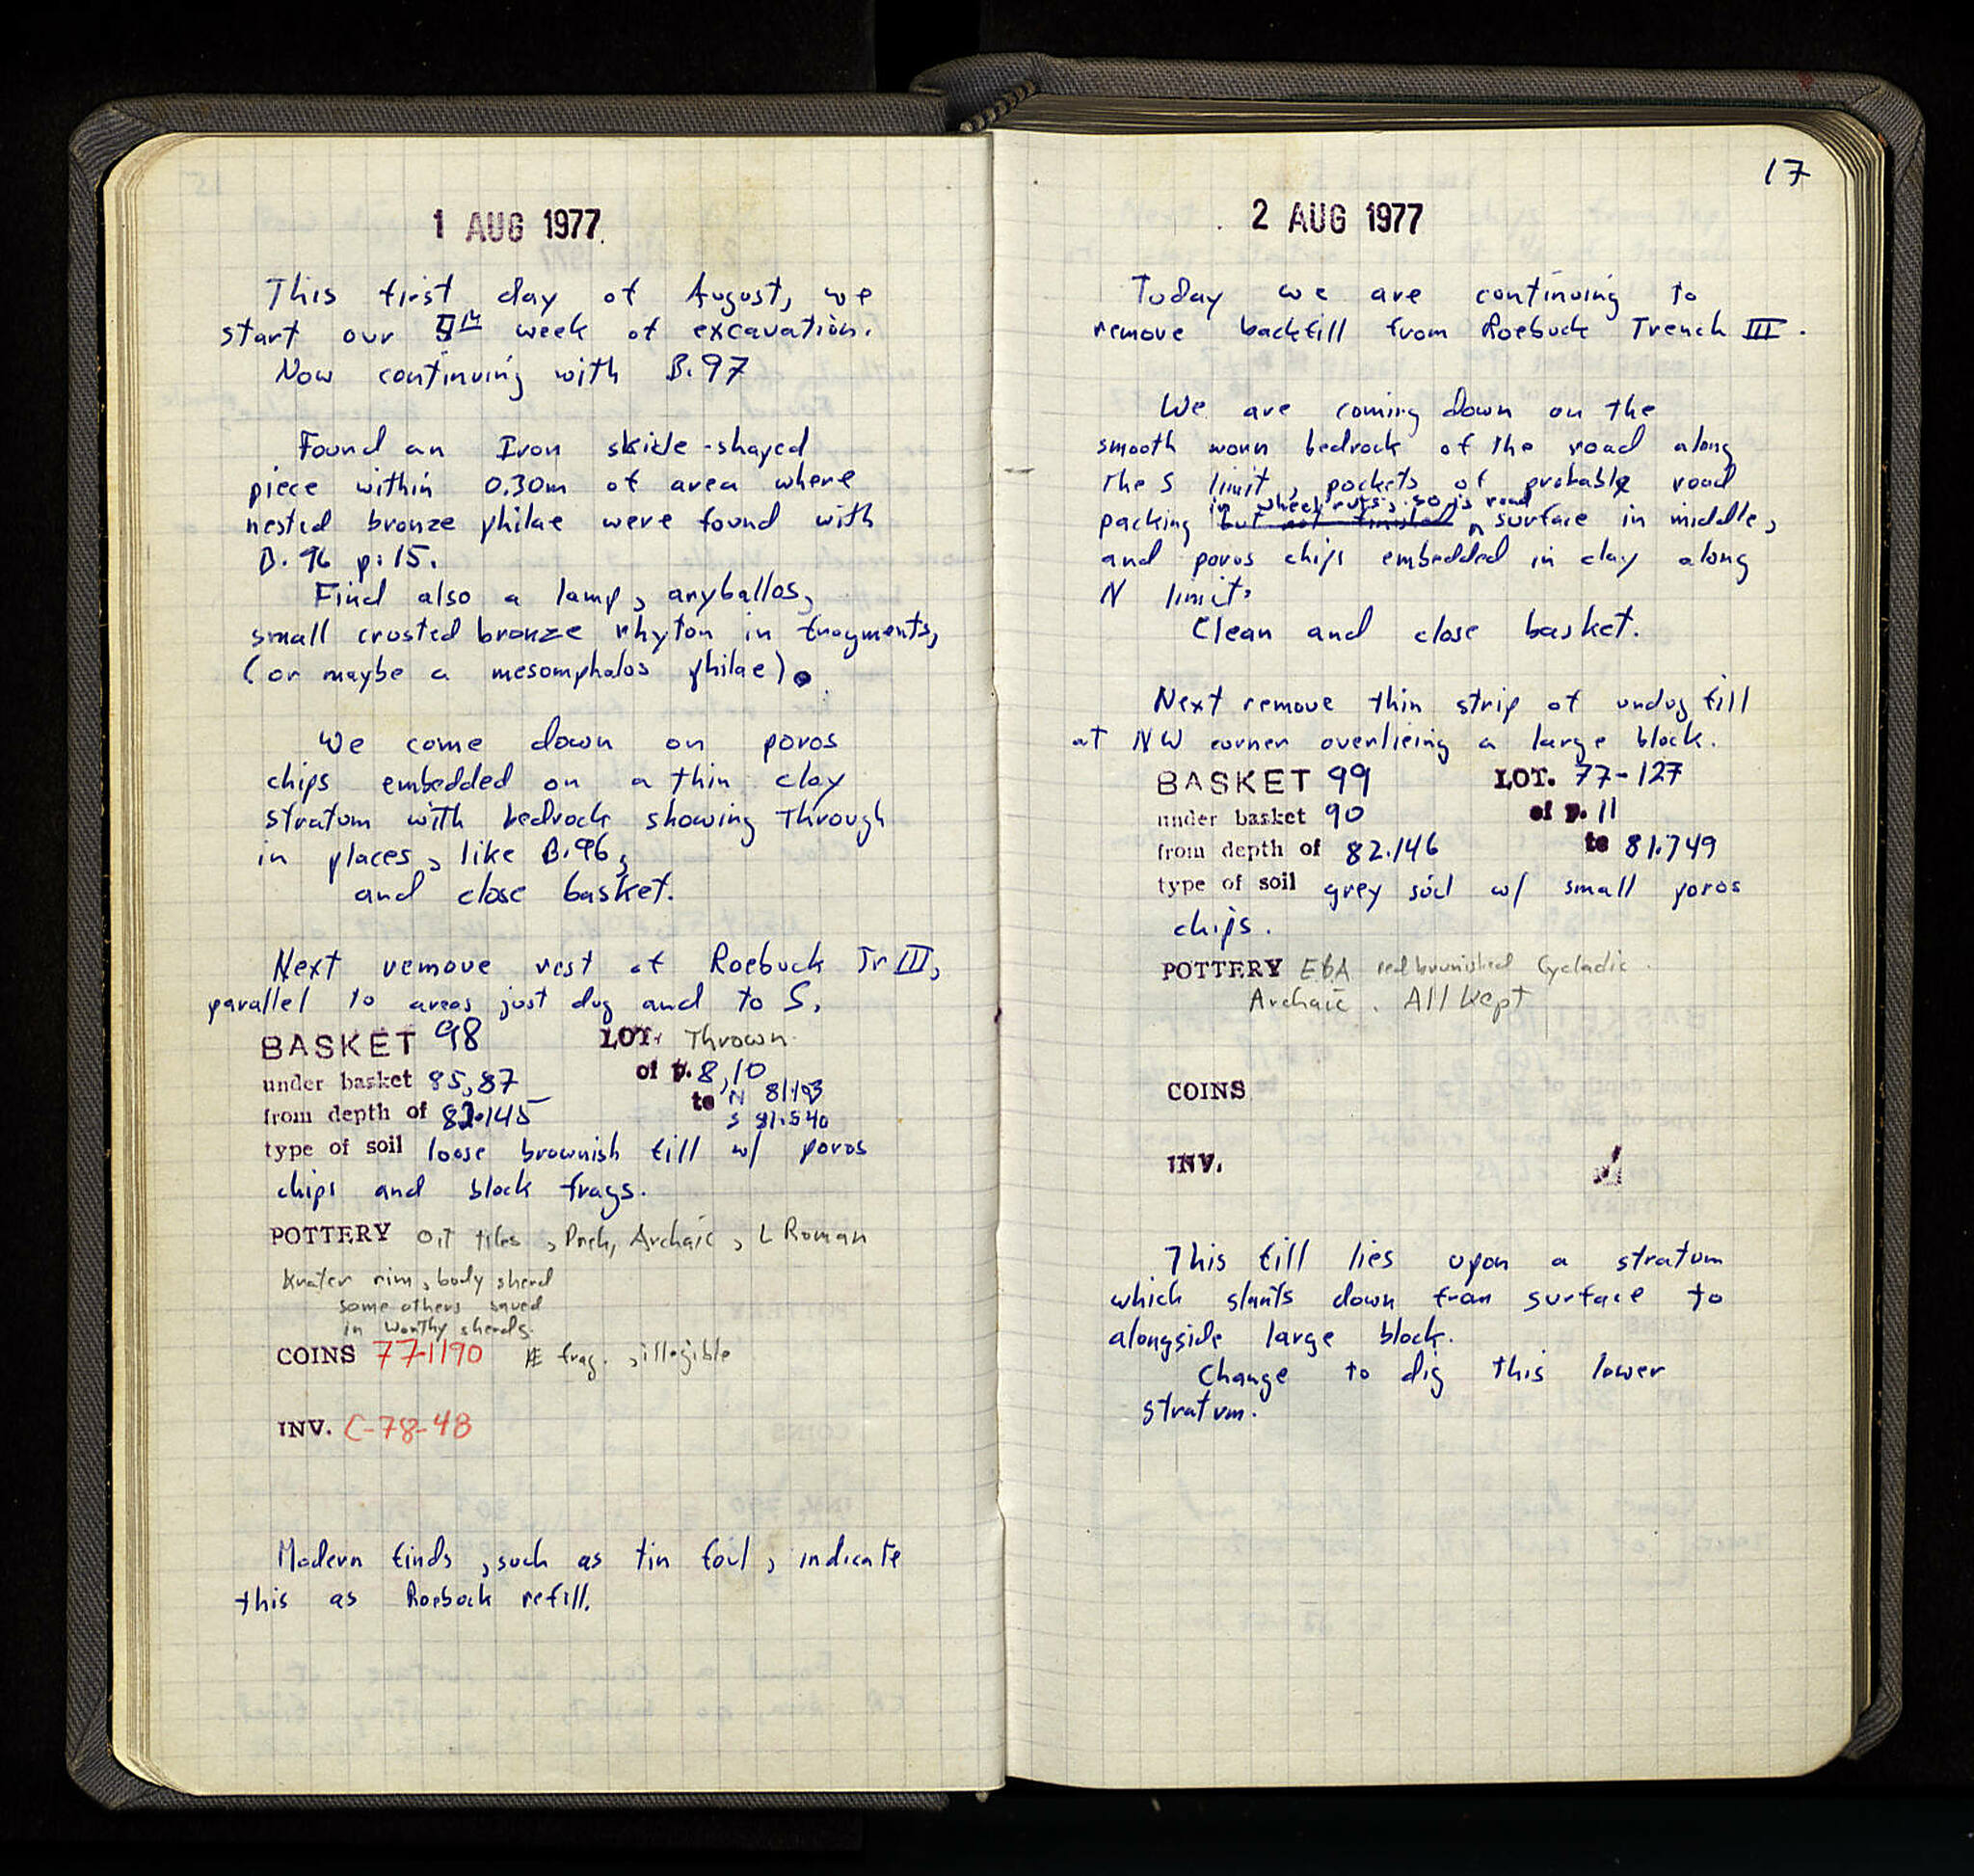 1 AUG 1977
This first day of August, we
start our 9th week of excavation.
Now continuing with B.97
Found an Iron sickle-shaped
piece within 0.30m of area where
nested bronze philae were found with
B. 96 p. 15.
Find also a lamp, aryballos,
small crusted bronze rhyton in fragments,
(or maybe a mesomphalos philae).
We come down on poros
chips embedded on a thin clay
stratum with bedrock showing through
in places, like B.96,
and close basket.
Next remove rest of Roebuck Tr III,
parallel to areas just dug and to S.
BASKET 98 LOT. Thrown
under basket 85,87 of p. 8,10
from depth of 82.145 to N 81.193
S 81.540
type of soil loose brownish fill w/ poros
chips and block frags.
POTTERY tiles, Archaic, L Roman
Krater rim, body sherd
some others saved
in Worthy sherds.
COINS 77-1190 Æ frag., illegible
INV. C-78-48
Modern finds, such as tin foil, indicate
this as Roebuck refill.
17
2 AUG 1977
Today we are continuing to
remove backfill from Roebuck Trench III.
We are coming down on the
smooth worn bedrock of the road along
the S limit, pockets of probable road
in wheel ruts, so is road
packing but not finished surface in middle,
and poros chips embedded in clay along
N limit.
Clean and close basket.
Next remove thin strip of undug fill
at NW corner overlieing a large block.
BASKET 99 LOT. 77-127
under basket 90 of p. 11
from depth of 82.146 to 81.749
type of soil grey soil w/ small poros
chips.
POTTERY EBA red burnished Cycladic
Archaic. All Kept
COINS
INV.
This fill lies upon a stratum
which slants down from surface to
alongside large block.
Change to dig this lower
stratum.